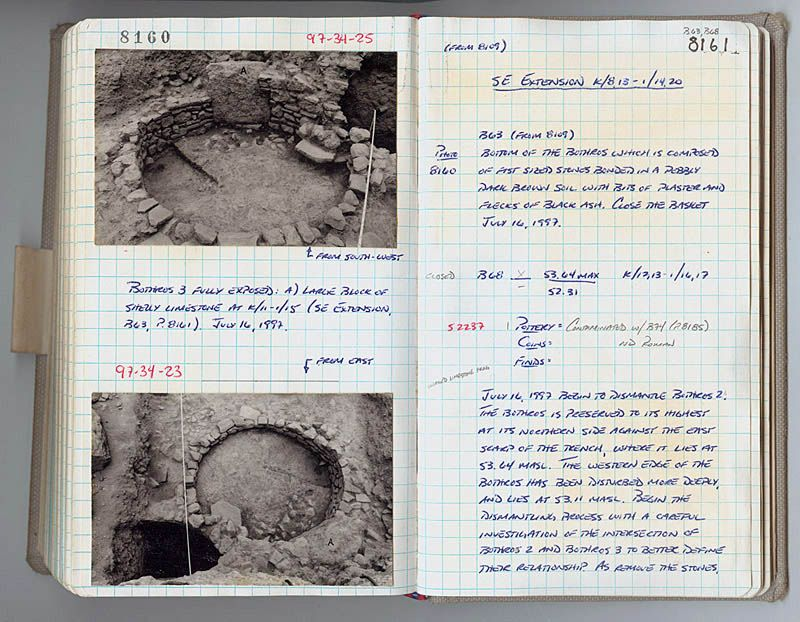 8160
97-34-25
A
↑ FROM SOUTH-WEST
BOTHROS 3 FULLY EXPOSED: A) LARGE BLOCK OF
SHELLY LIMESTONE AT K/11-1/15 (SE EXTENSION,
B63, P.8161). JULY 16, 1997.
↓ FROM EAST
97-34-23
A
B63, B68
8161
(FROM 8109)
SE EXTENSION K/8,13-1/14,20
B63 (FROM 8109)
PHOTO
8160
BOTTOM OF THE BOTHROS WHICH IS COMPOSED
OF FIST SIZED STONES BONDED IN A PEBBLY
DARK BROWN SOIL WITH BITS OF PLASTER AND
FLECKS OF BLACK ASH. CLOSE THE BASKET
JULY 16, 1997.
CLOSED B68 X/- 53.64 MAX K/17,13-1/16,17
52.31
52237 1 POTTERY = CONTAMINATED W/ B74 (P.8185)
COINS= ND ROMAN
FINDS=
JULY 16, 1997 BEGIN TO DISMANTLE BOTHROS 2.
THE BOTHROS IS PRESERVED TO ITS HIGHEST
AT ITS NORTHERN SIDE AGAINST THE EAST
SCARP OF THE TRENCH, WHERE IT LIES AT
53.64 MASL. THE WESTERN EDGE OF THE
BOTHROS HAS BEEN DISTURBED MORE DEEPLY,
AND LIES AT 53.11 MASL. BEGIN THE
DISMANTLING PROCESS WITH A CAREFUL
INVESTIGATION OF THE INTERSECTION OF
BOTHROS 2 AND BOTHROS 3 TO BETTER DEFINE
THEIR RELATIONSHIP. AS REMOVE THE STONES,